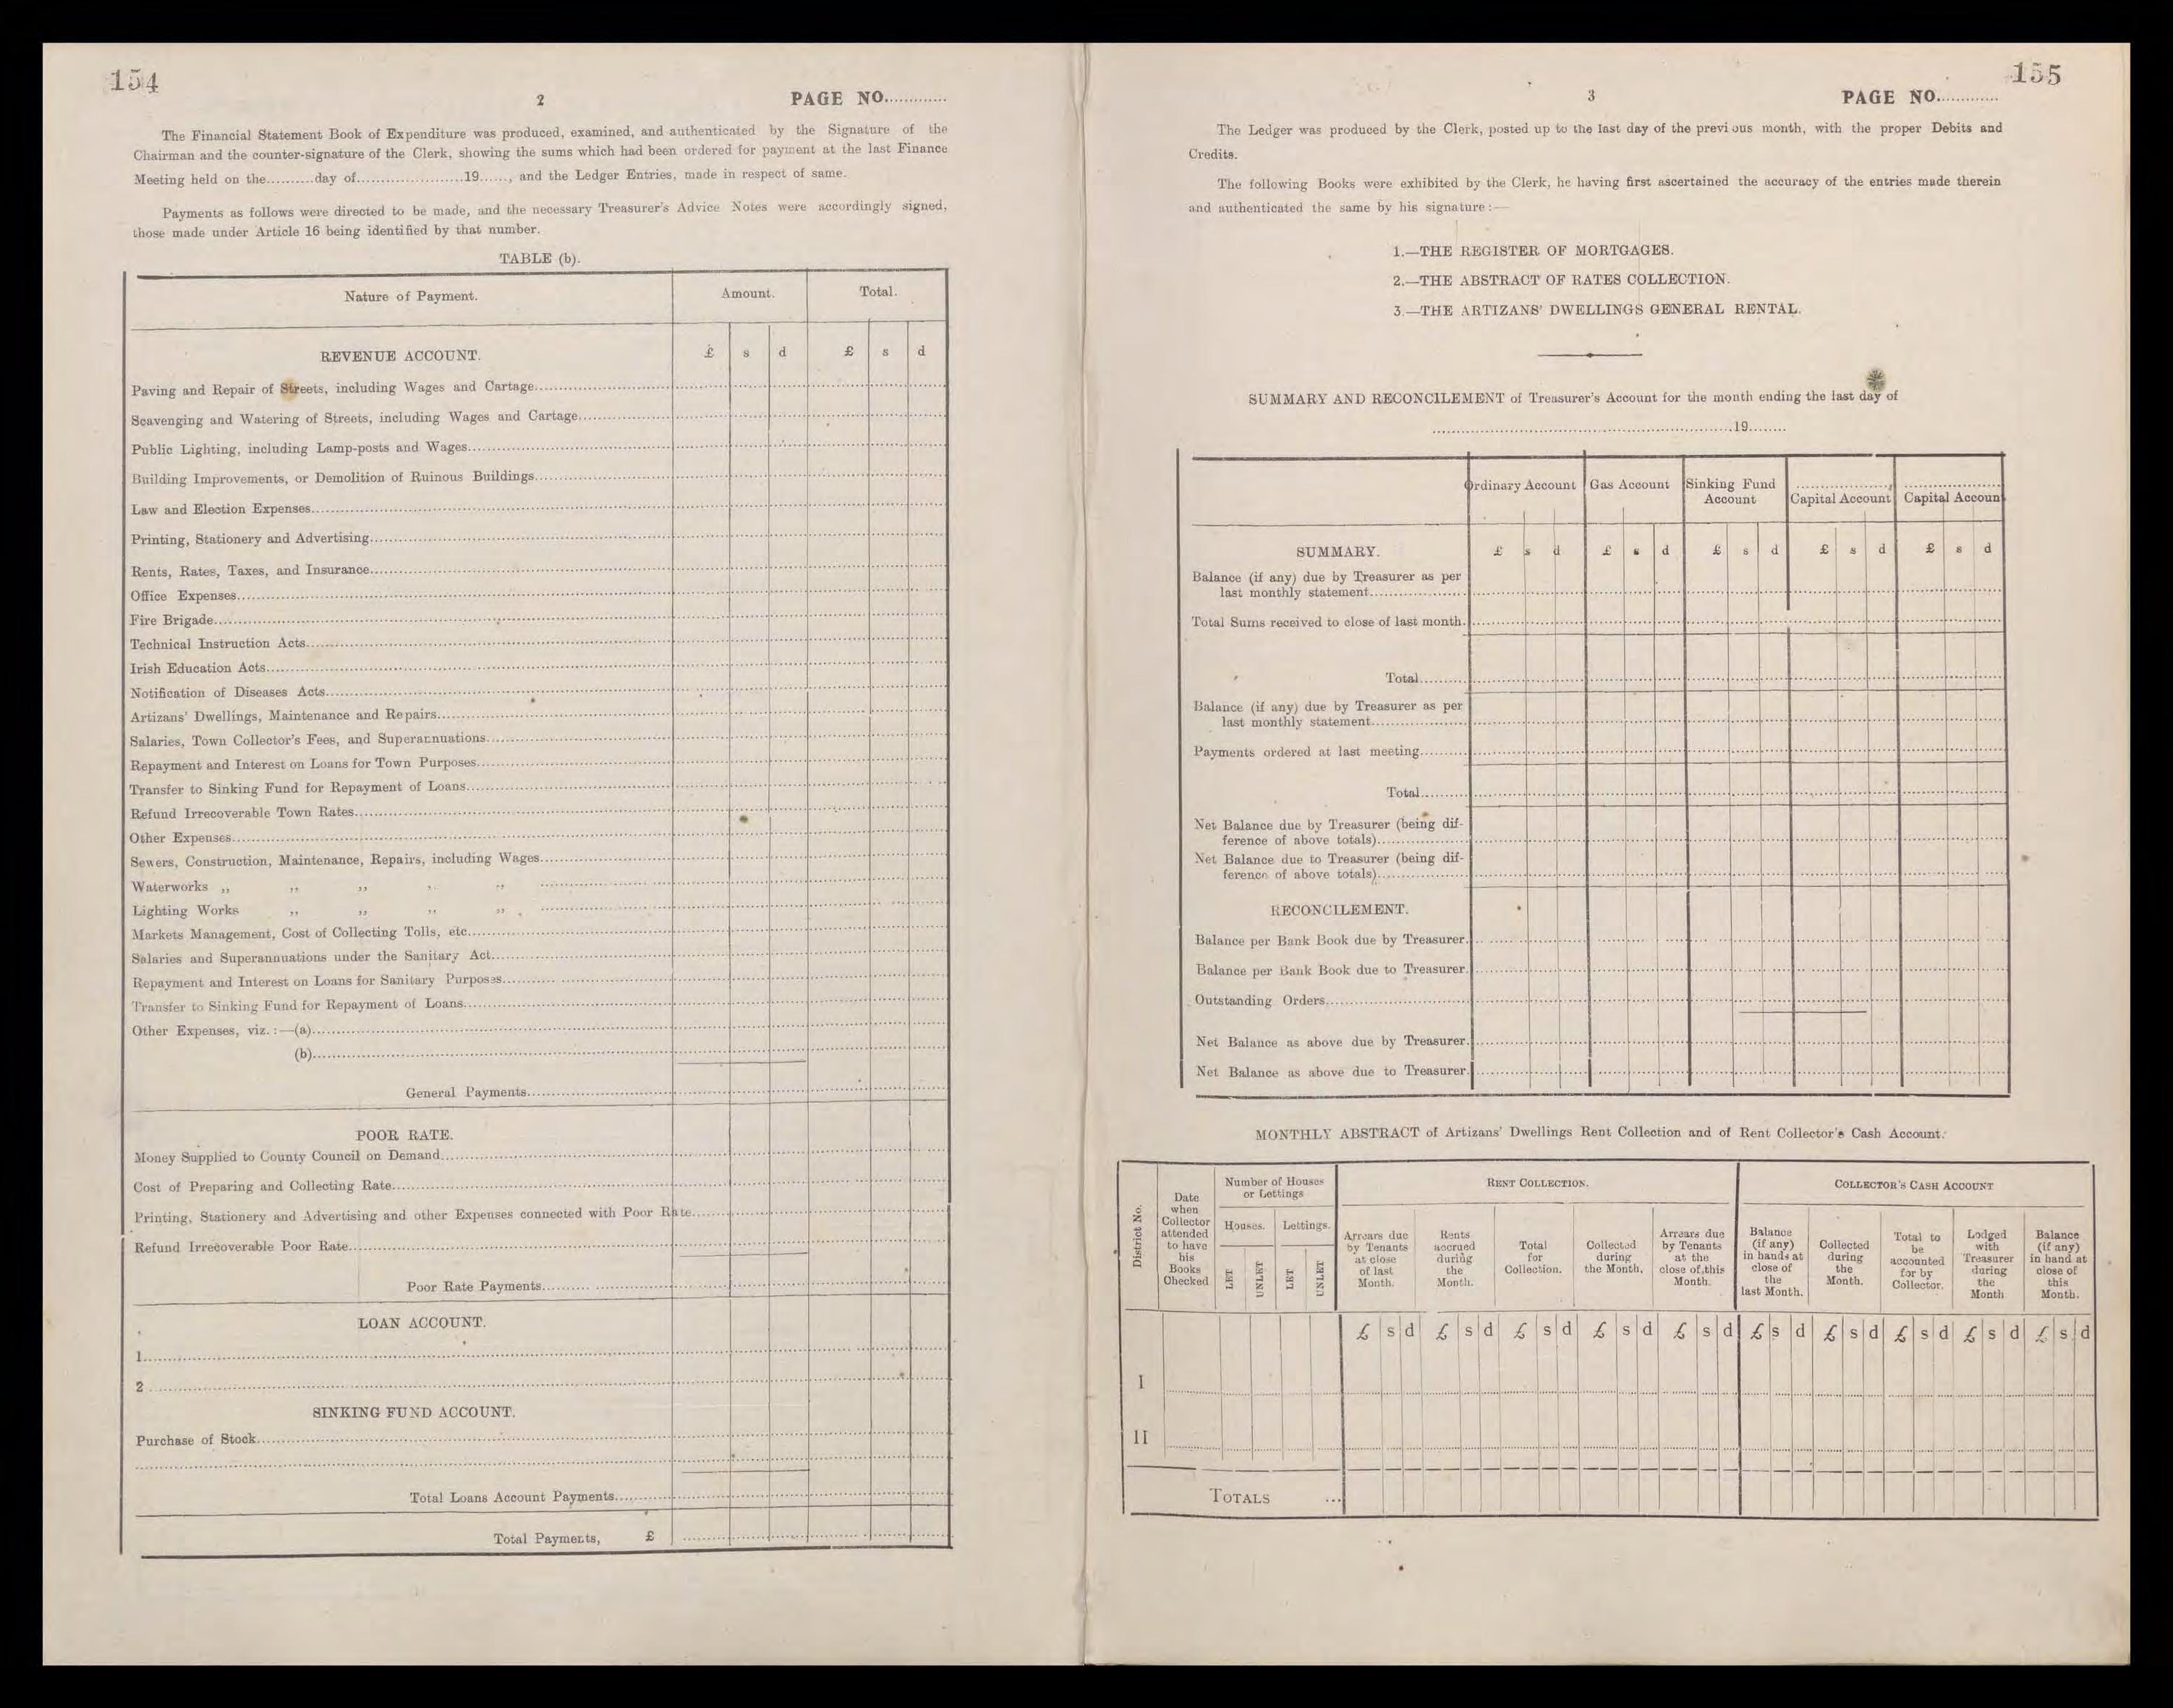 154
2
PAGE NO.............
The Financial Statement Book of Expenditure was produced, examined, and authenticated by the Signature of the
Chairman and the counter-signature of the Clerk, showing the sums which had been ordered for payment at the last Finance
Meeting held on the..........day of......................19......, and the Ledger Entries, made in respect of same.
Payments as follows were directed to be made, and the necessary Treasurer's Advice Notes were accordingly signed,
those made under Article 16 being identified by that number.
TABLE (b).
Nature of Payment. Amount. Total.
REVENUE ACCOUNT. £ s d £ s d
Paving and Repair of Streets, including Wages and Cartage
Scavenging and Watering of Streets, including Wages and Cartage
Public Lighting, including Lamp-posts and Wages
Building Improvements, or Demolition of Ruinous Buildings
Law and Election Expenses
Printing, Stationery and Advertising
Rents, Rates, Taxes, and Insurance
Office Expenses
Fire Brigade
Technical Instruction Acts
Irish Education Acts
Notification of Diseases Acts
Artizans' Dwellings, Maintenance and Repairs
Salaries, Town Collector's Fees, and Superannuations
Repayment and Interest on Loans for Town Purposes
Transfer to Sinking Fund for Repayment of Loans
Refund Irrecoverable Town Rates
Other Expenses
Sewers, Construction, Maintenance, Repairs, including Wages
Waterworks ,, ,, ,, ,, ,,
Lighting Works ,, ,, ,, ,,
Markets Management, Cost of Collecting Tolls, etc.
Salaries and Superannuations under the Sanitary Act
Repayment and Interest on Loans for Sanitary Purposes
Transfer to Sinking Fund for Repayment of Loans
Other Expenses, viz. :—(a)
(b)
General Payments
POOR RATE.
Money Supplied to County Council on Demand
Cost of Preparing and Collecting Rate
Printing, Stationery and Advertising and other Expenses connected with Poor Rate
Refund Irrecoverable Poor Rate
Poor Rate Payments
LOAN ACCOUNT.
1
2
SINKING FUND ACCOUNT.
Purchase of Stock
Total Loans Account Payments
Total Payments, £
155
3
PAGE NO.............
The Ledger was produced by the Clerk, posted up to the last day of the previous month, with the proper Debits and
Credits.
The following Books were exhibited by the Clerk, he having first ascertained the accuracy of the entries made therein
and authenticated the same by his signature :—
1.—THE REGISTER OF MORTGAGES.
2.—THE ABSTRACT OF RATES COLLECTION.
3.—THE ARTIZANS' DWELLINGS GENERAL RENTAL.
SUMMARY AND RECONCILEMENT of Treasurer's Account for the month ending the last day of
.............................................19........
Ordinary Account Gas Account Sinking Fund
Account Capital Account Capital Accoun
SUMMARY. £ s d £ s d £ s d £ s d £ s d
Balance (if any) due by Treasurer as per
last monthly statement
Total Sums received to close of last month.
Total
Balance (if any) due by Treasurer as per
last monthly statement
Payments ordered at last meeting
Total
Net Balance due by Treasurer (being dif-
ference of above totals)
Net Balance due to Treasurer (being dif-
ference of above totals)
RECONCILEMENT.
Balance per Bank Book due by Treasurer.
Balance per Bank Book due to Treasurer.
Outstanding Orders
Net Balance as above due by Treasurer.
Net Balance as above due to Treasurer.
MONTHLY ABSTRACT of Artizans' Dwellings Rent Collection and of Rent Collector's Cash Account.
District No.
Date
when
Collector
attended
to have
his
Books
Checked
Number of Houses
or Lettings
Houses. Lettings.
LET UNLET LET UNLET
RENT COLLECTION.
Arrears due
by Tenants
at close
of last
Month.
Rents
accrued
during
the
Month.
Total
for
Collection.
Collected
during
the Month.
Arrears due
by Tenants
at the
close of this
Month.
COLLECTOR'S CASH ACCOUNT
Balance
(if any)
in hands at
close of
the
last Month.
Collected
during
the
Month.
Total to
be
accounted
for by
Collector.
Lodged
with
Treasurer
during
the
Month
Balance
(if any)
in hand at
close of
this
Month.
£ s d £ s d £ s d £ s d £ s d £ s d £ s d £ s d £ s d £ s d
I
II
TOTALS ...